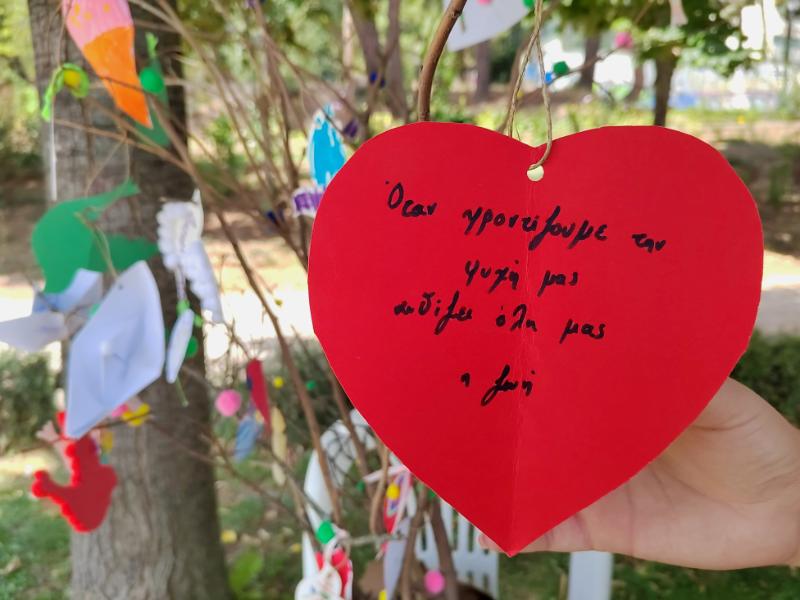 Όταν φροντίζουμε την
ψυχή μας
ανθίζει όλη μας
η ζωή